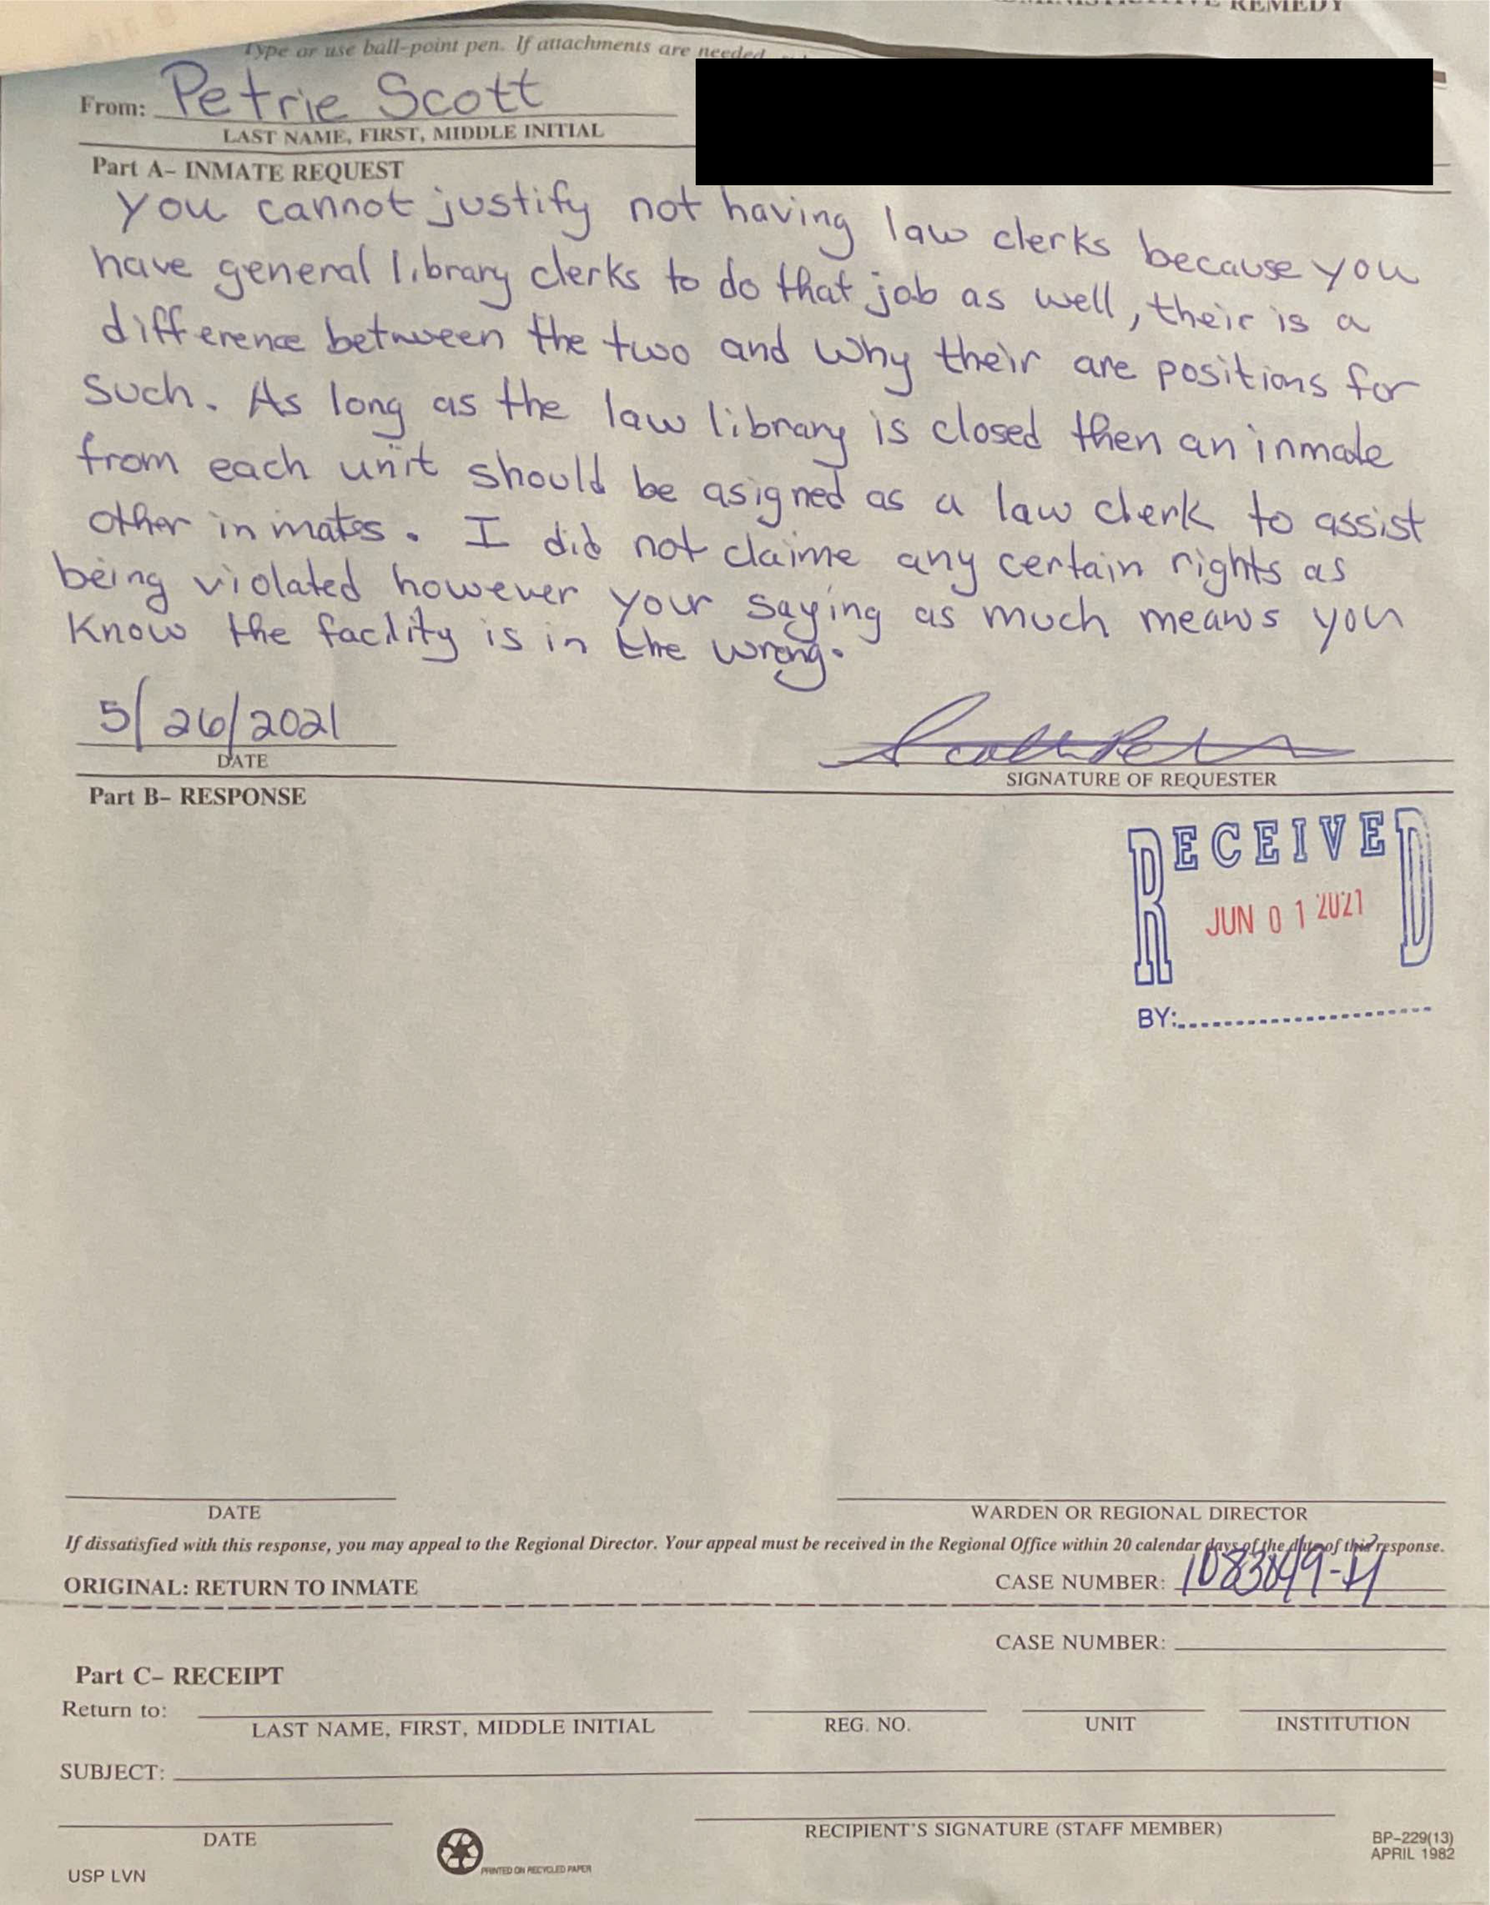 REMEDY
Type or use ball-point pen. If attachments are needed
From: Petrie Scott
LAST NAME, FIRST, MIDDLE INITIAL
Part A– INMATE REQUEST
You cannot justify not having law clerks because you
have general library clerks to do that job as well, their is a
difference between the two and why their are positions for
such. As long as the law library is closed then an inmate
from each unit should be asigned as a law clerk to assist
other inmates. I did not claime any certain rights as
being violated however your saying as much means you
know the facility is in the wrong.
5/26/2021
DATE
SIGNATURE OF REQUESTER
Part B– RESPONSE
RECEIVED
JUN 01 2021
BY:
DATE
WARDEN OR REGIONAL DIRECTOR
If dissatisfied with this response, you may appeal to the Regional Director. Your appeal must be received in the Regional Office within 20 calendar days of the date of this response.
ORIGINAL: RETURN TO INMATE
CASE NUMBER:
CASE NUMBER:
Part C– RECEIPT
Return to:
LAST NAME, FIRST, MIDDLE INITIAL
REG. NO.
UNIT
INSTITUTION
SUBJECT:
DATE
RECIPIENT'S SIGNATURE (STAFF MEMBER)
USP LVN
PRINTED ON RECYCLED PAPER
BP–229(13)
APRIL 1982